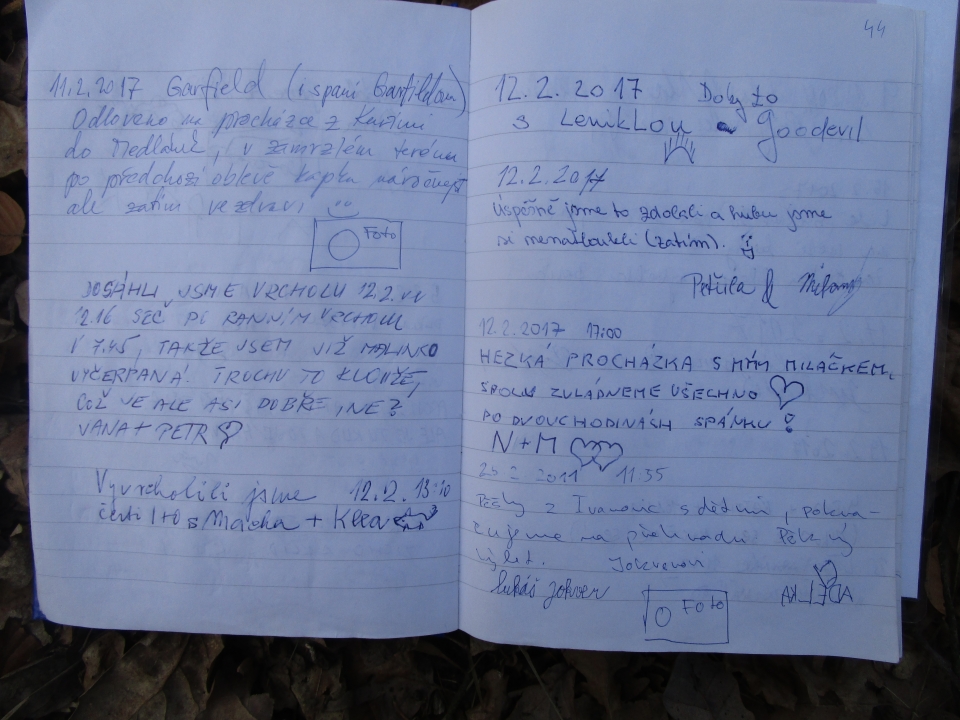 11.2.2017 Garfield (i spaní Garfieldem)
Odloveno na procházce z Kuřimi
do Medlánek, v zamrzlém terénu
po předchozí oblevě kapka náročnější
ale zatím ve zdraví
Foto
DOSÁHLI JSME VRCHOLU 12.2. VE
12.16 SEČ PO RANNÍM VRCHOLU
V 7.45, TAKŽE JSEM JIŽ MALINKO
VYČERPANÁ! TROCHU TO KLOUŽE,
COŽ JE ALE ASI DOBŘE, NE?
JANA + PETR
Vyvrcholili jsme 12.2. 13:10
čerti 1+0 s Macha + Klea
44
12.2.2017 Doby to
s LeniKLou Goodevil
12.2.2017
Úspěšně jsme to zdolali a hubu jsme
si nenatloukli (zatím).
Petrila &
12.2.2017 17:00
HEZKÁ PROCHÁZKA S MÝM MILÁČKEM,
SPOLU ZVLÁDNEME VŠECHNO
PO DVOUCHODINÁSH SPÁNKU!
N+M
11:35
Pěšky z Ivanovic s dětmi, pokra-
čujeme na přehradu Pěkný
výlet.
lukáš
ADÉLKA
Foto